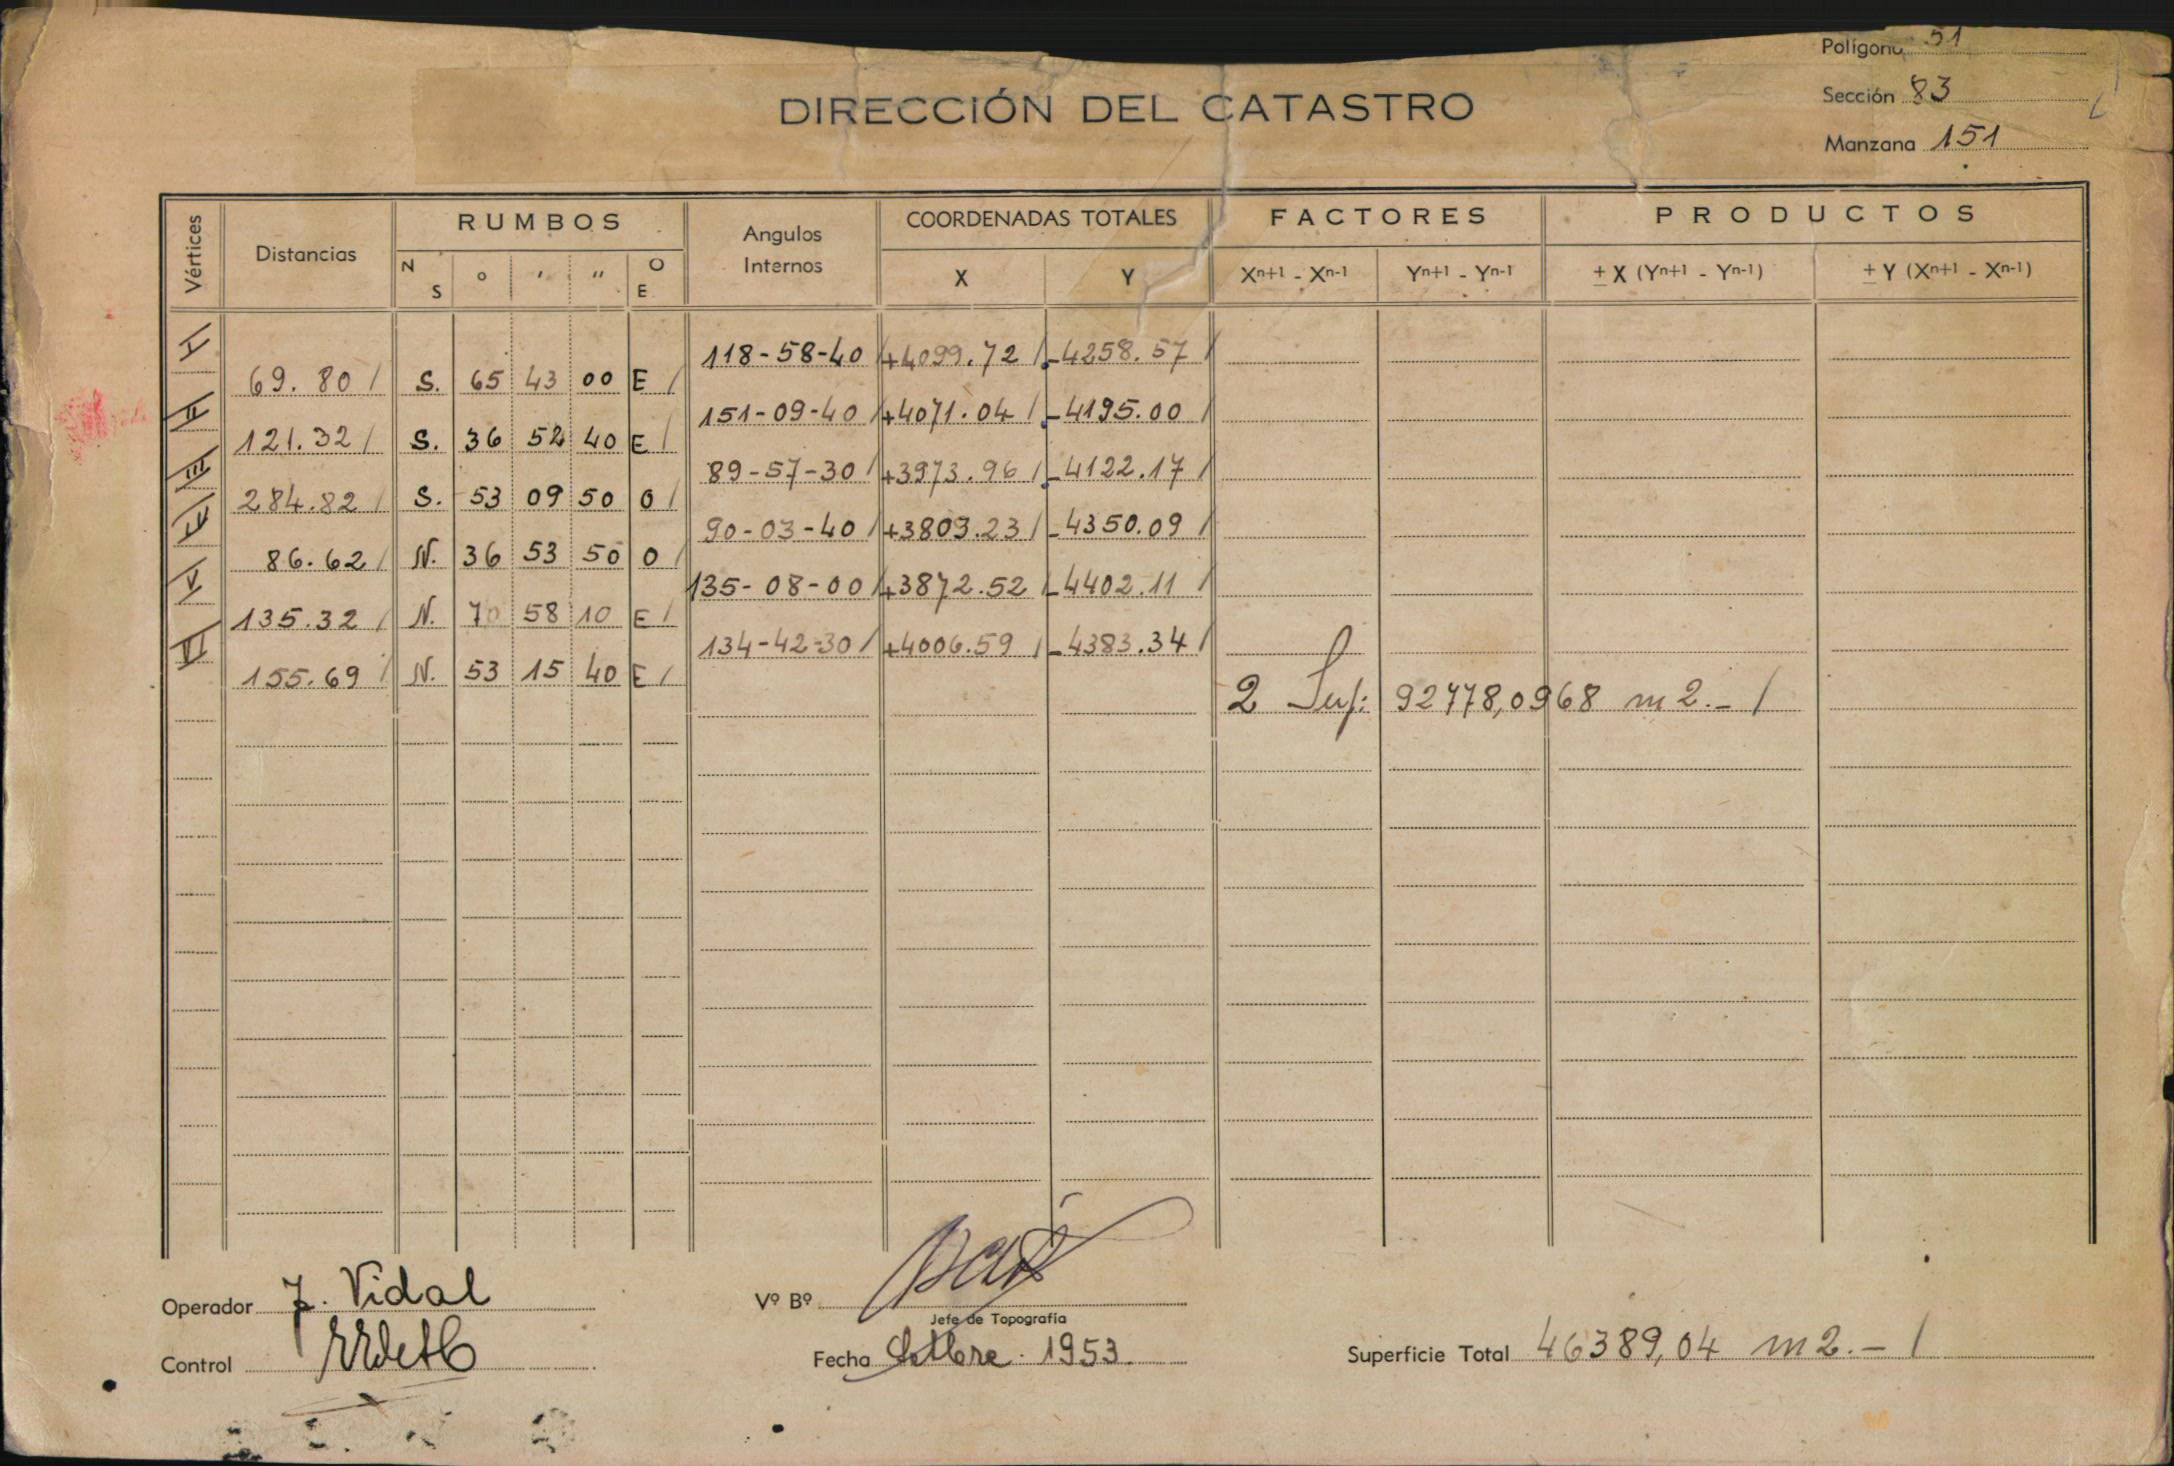 Polígono 51
DIRECCIÓN DEL CATASTRO
Sección 83
Manzana 151
Vértices
Distancias
RUMBOS
N S ° ' " O E
Angulos Internos
COORDENADAS TOTALES
X Y
FACTORES
Xn+1 - Xn-1 Yn+1 - Yn-1
PRODUCTOS
± X (Yn+1 - Yn-1) ± Y (Xn+1 - Xn-1)
I 118-58-40 +4099.72 -4258.57
69.80 S. 65 43 00 E
II 151-09-40 +4071.04 -4195.00
121.32 S. 36 52 40 E
III 89-57-30 +3973.96 -4122.17
284.82 S. 53 09 50 O
IV 90-03-40 +3803.23 -4350.09
86.62 N. 36 53 50 O
V 135-08-00 +3872.52 -4402.11
135.32 N. 7 58 10 E
VI 134-42-30 +4006.59 -4383.34
155.69 N. 53 15 40 E
2 Sup: 92778,0968 m2.-
Operador J. Vidal
Vº Bº
Jefe de Topografía
Control
Fecha 1953.
Superficie Total 46389,04 m2.-